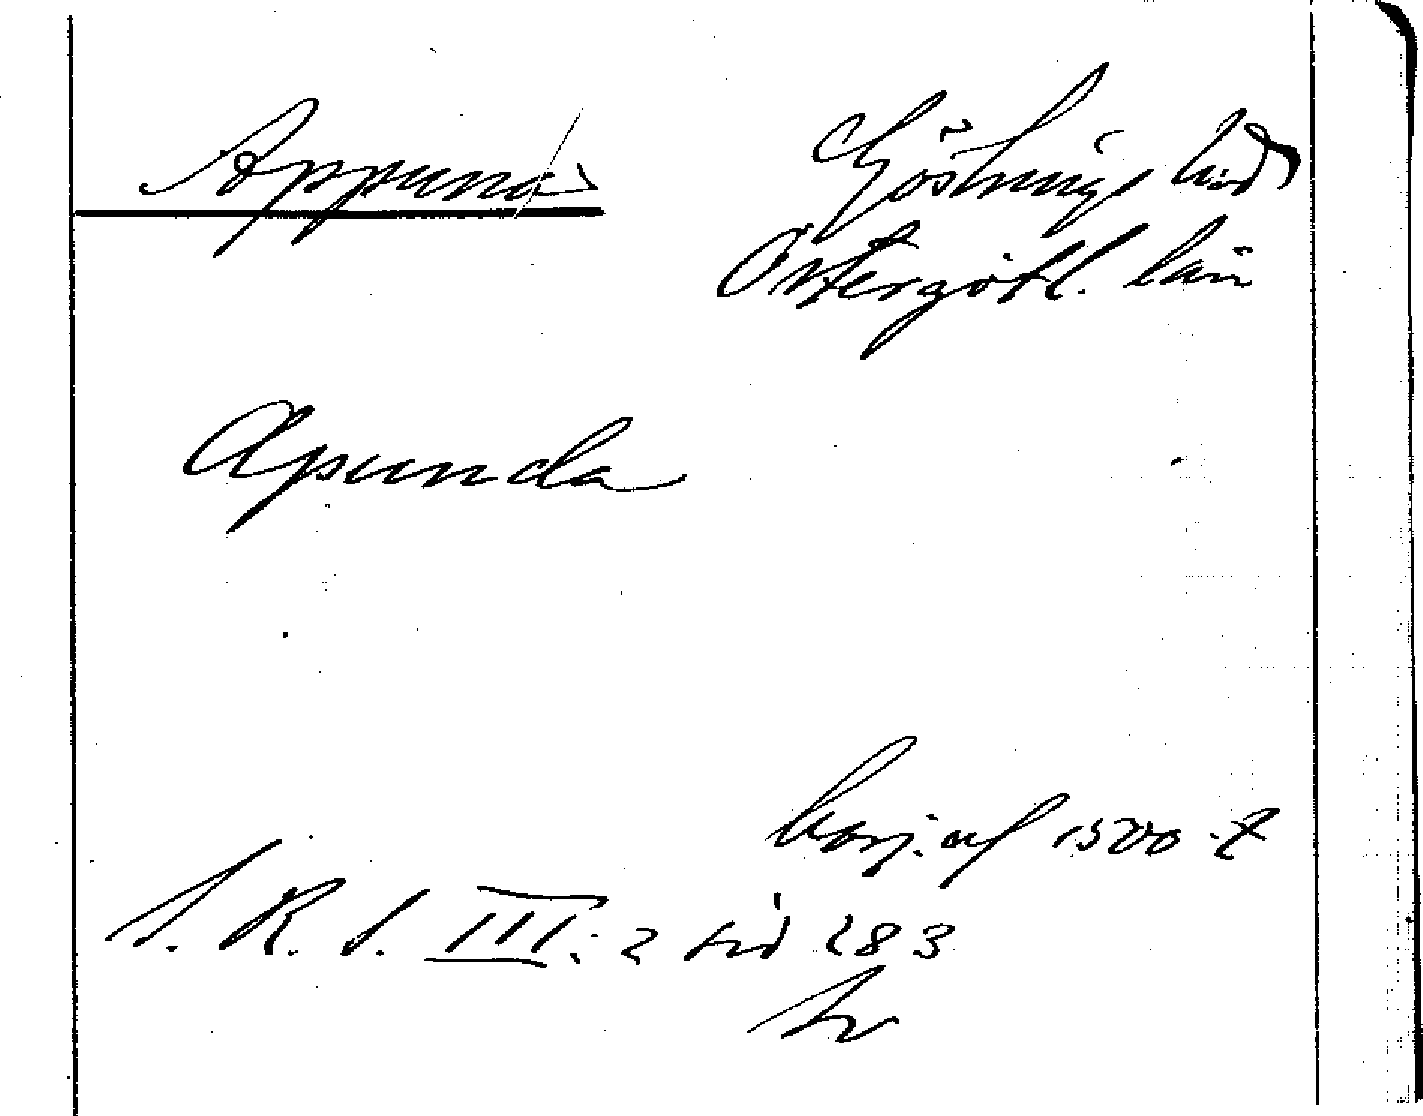 Appuna
Göstrings hd
Östergötl. län
Apunda
börj. af 1500-t
S. R. S. III: 2 sid 283